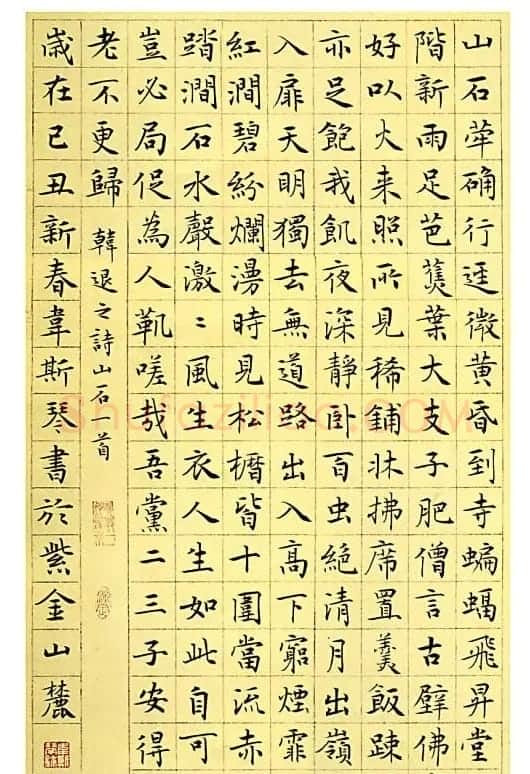 山石犖确行逕微黄昏到寺蝙蝠飛昇堂
階新雨足芭蕉葉大支子肥僧言古壁佛
好以火来照所見稀鋪牀拂席置羹飯踈
亦足飽我飢夜深靜卧百虫絶清月出嶺
入扉天明獨去無道路出入髙下窮煙霏
紅澗碧紛爛漫時見松櫪皆十圍當流赤
踏澗石水聲激〻風生衣人生如此自可
豈必局促為人鞿嗟哉吾黨二三子安得
老不更歸 韓退之詩山石一首
歲在己丑新春韋斯琴書於紫金山麓